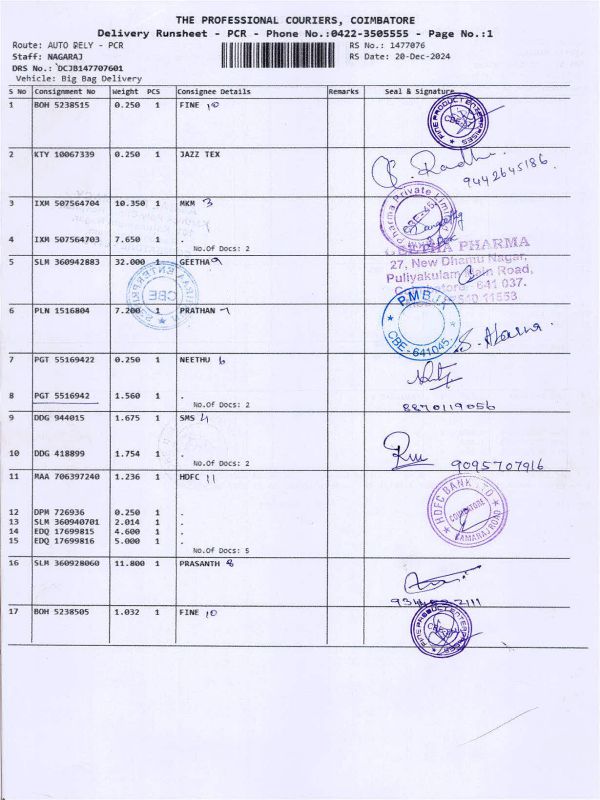 THE PROFESSIONAL COURIERS, COIMBATORE
Delivery Runsheet - PCR - Phone No.:0422-3505555 - Page No.:1
Route: AUTO RELY - PCR RS No.: 1477076
Staff: NAGARAJ RS Date: 20-Dec-2024
DRS No.: DCJB147707601
Vehicle: Big Bag Delivery
S No Consignment No Weight PCS Consignee Details Remarks Seal & Signature
1 BOH 5238515 0.250 1 FINE 10
FINE PRODUCT ENTERPRISES
2 KTY 10067339 0.250 1 JAZZ TEX
9442645186
3 IXM 507564704 10.350 1 MKM 3
Pharma Private Limited
4 IXM 507564703 7.650 1 .
No.Of Docs: 2
5 SLM 360942883 32.000 1 GEETHA 9
GEETHA PHARMA
27, New Dhamu Nagar,
Puliyakulam Main Road,
Coimbatore - 641 037.
CBE
6 PLN 1516804 7.200 1 PRATHAN 7
CBE-641045.
7 PGT 55169422 0.250 1 NEETHU 6
8 PGT 5516942 1.560 1 .
No.Of Docs: 2
8870119056
9 DDG 944015 1.675 1 SMS 4
10 DDG 418899 1.754 1 .
No.Of Docs: 2
9095707916
11 MAA 706397240 1.236 1 HDFC 11
HDFC BANK LTD
COIMBATORE
KAMARAJ ROAD
12 DPM 726936 0.250 1 .
13 SLM 360940701 2.014 1 .
14 EDQ 17699815 4.600 1 .
15 EDQ 17699816 5.000 1 .
No.Of Docs: 5
16 SLM 360928060 11.800 1 PRASANTH 8
17 BOH 5238505 1.032 1 FINE 10
FINE PRODUCT ENTERPRISES